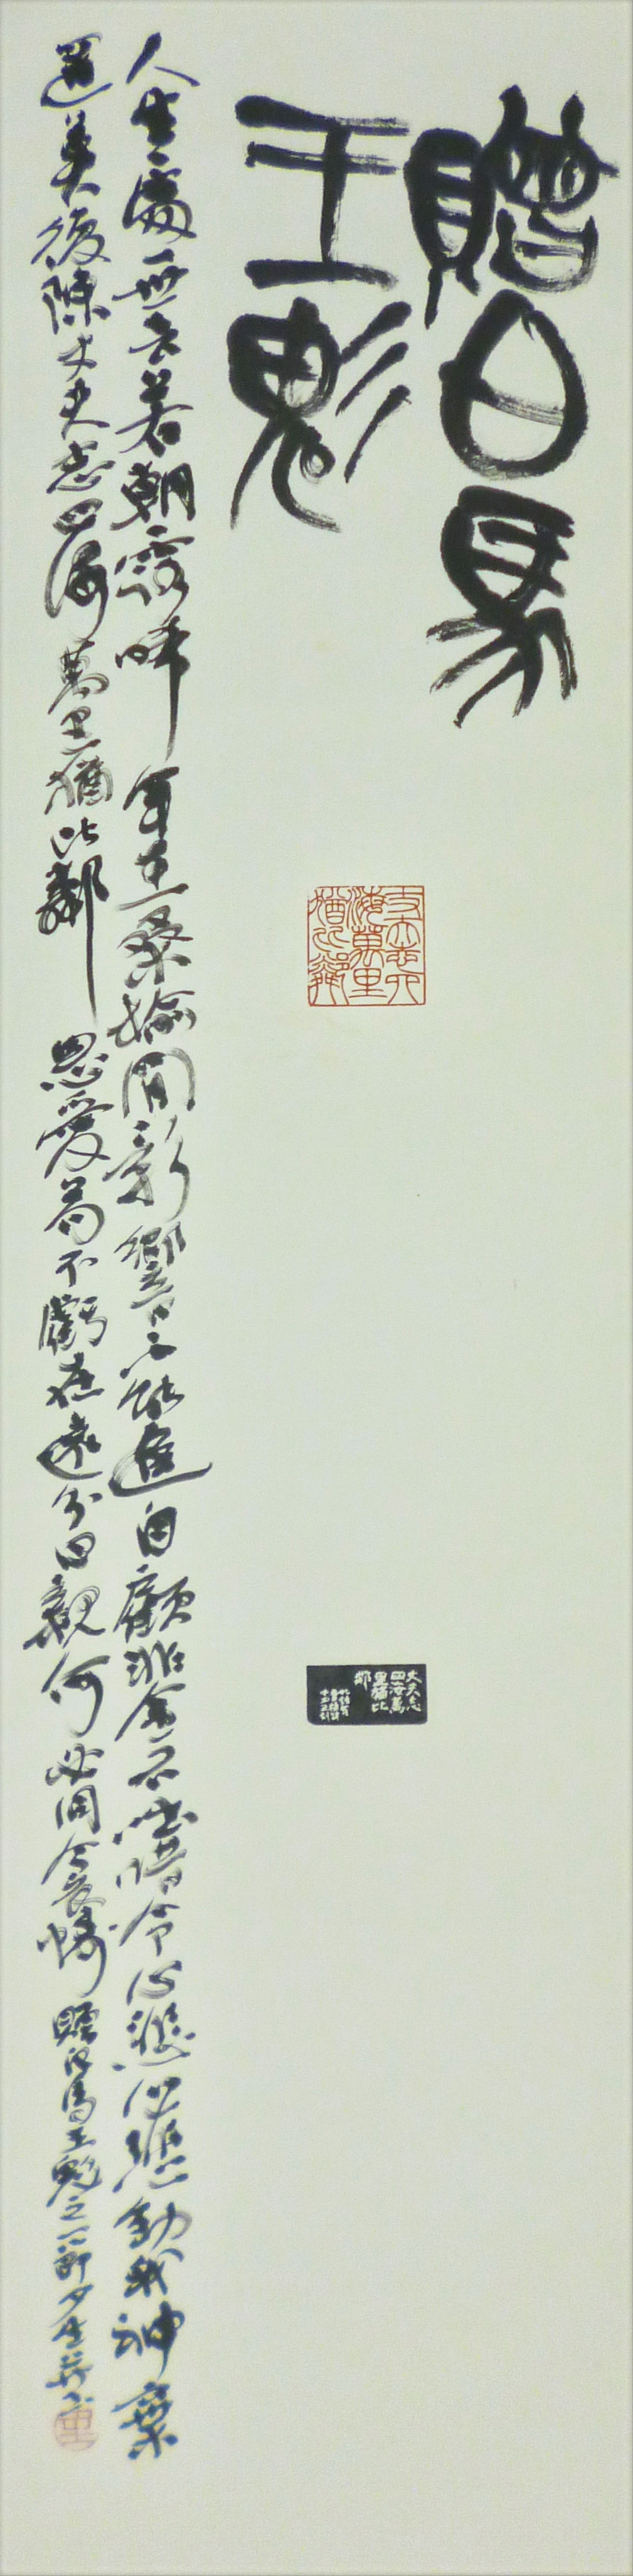 贈白馬
王彪
丈夫志四
海萬里
猶比鄰
丈夫志
四海萬
里猶比
鄰
人生處一世去若朝露晞年在桑榆間影響不能追自顧非金石咄唶令心悲心悲動我神棄
置莫復陳丈夫志四海萬里猶比鄰恩愛苟不虧在遠分日親何必同衾幬贈白馬王彪之一節